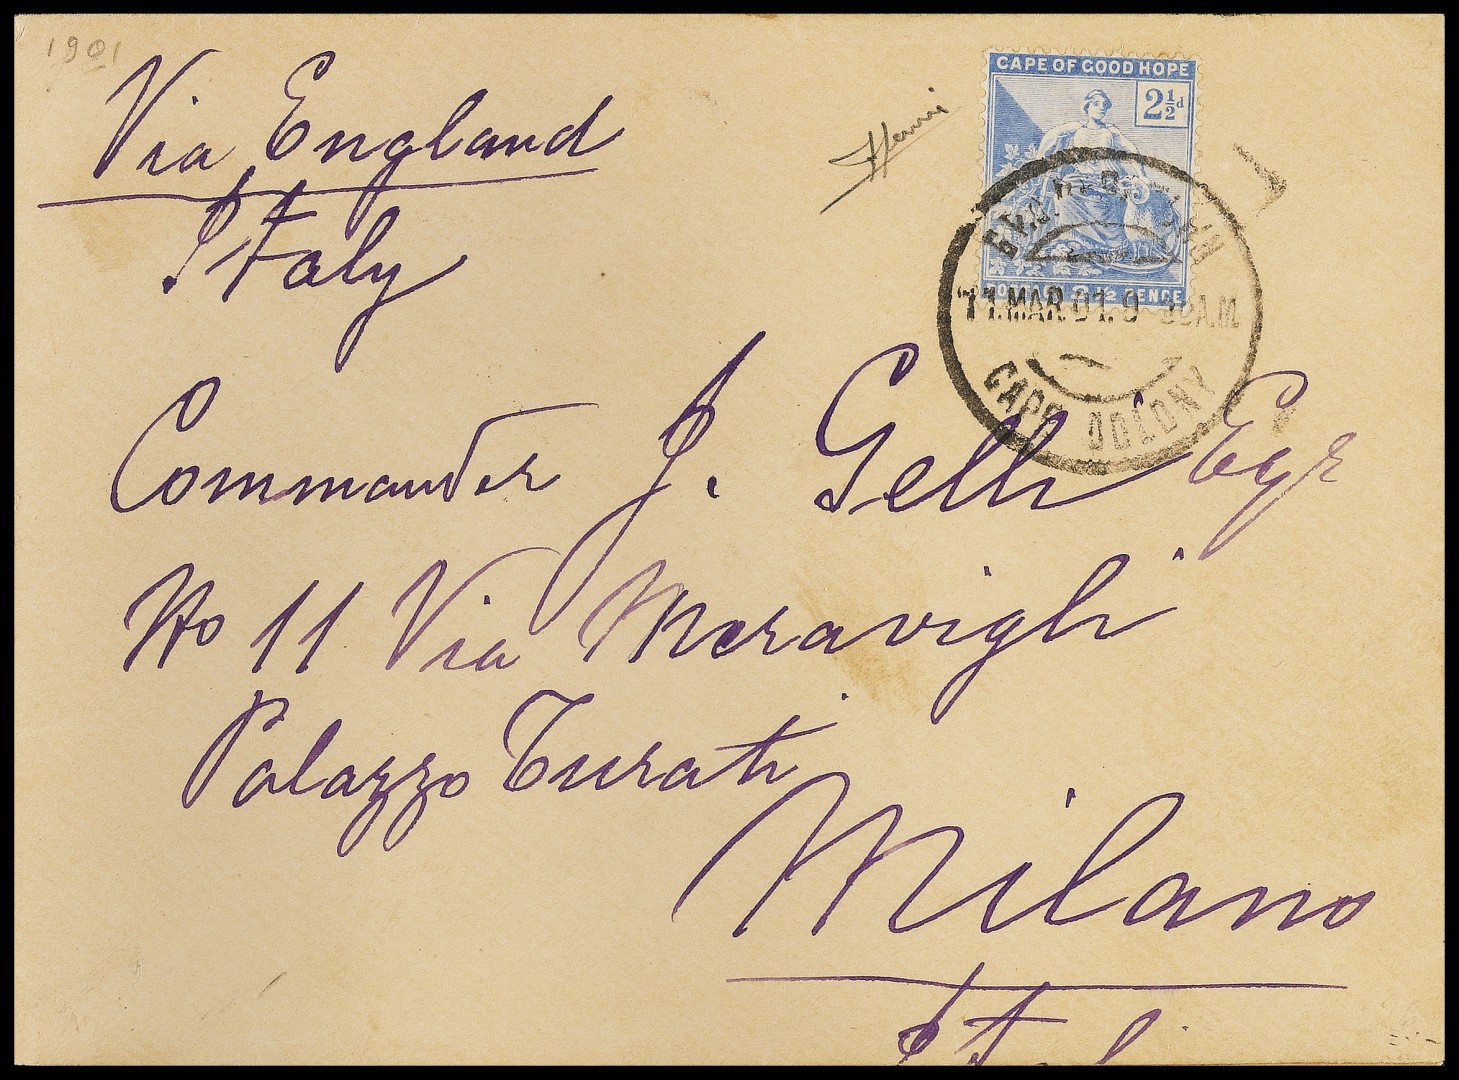 1901
Via England
Italy
CAPE OF GOOD HOPE
2½d
11.MAR.01.9 A.M.
CAPE COLONY
Commander J. Gelli Eqr
No 11 Via Meravigli
Palazzo Turati
Milano